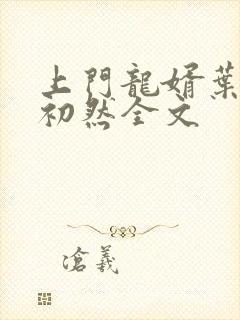 上門龍婿葉
初然全文
滄義